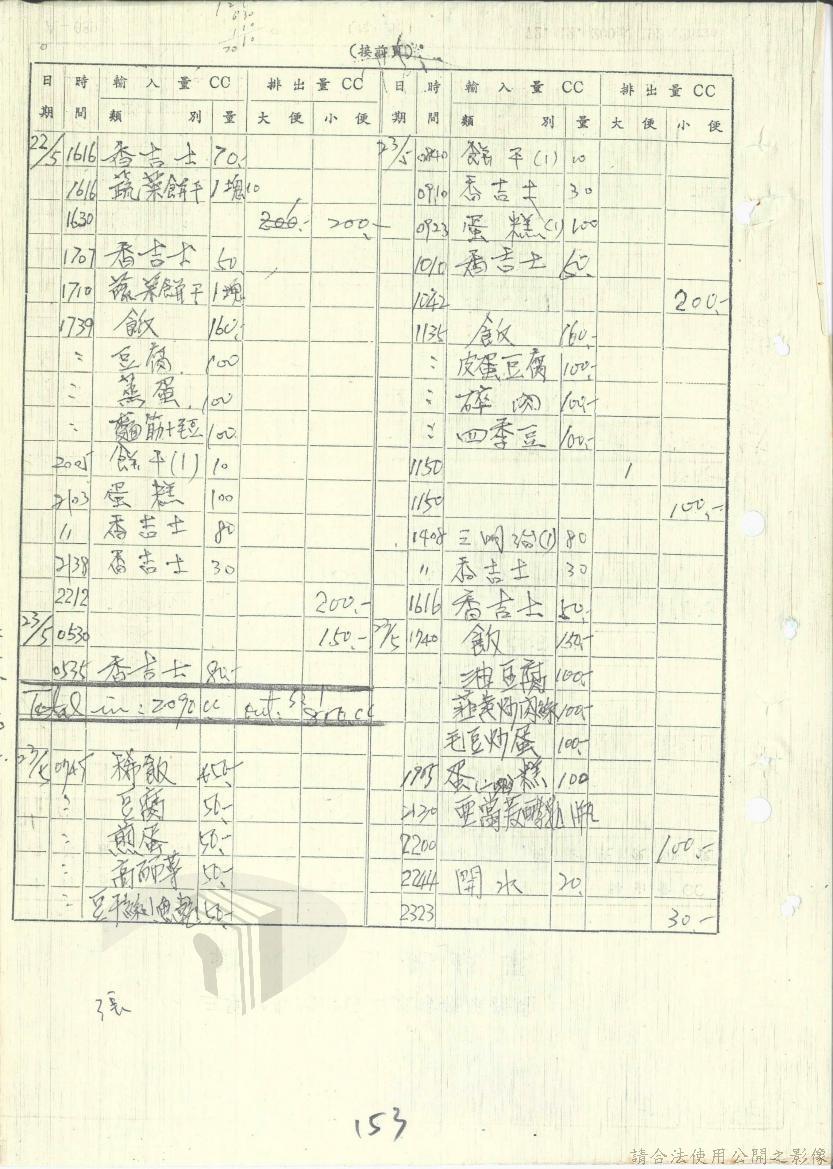 (接前頁)
日期 時間 輸入量 CC 類別 量 排出量 CC 大便 小便
22/5 1616 香吉士 70.-
1616 蔬菜餅干 1塊 10
1630 200.- 200.-
1707 香吉士 50
1710 蔬菜餅干 1塊
1739 飯 160.-
〃 豆腐 100
〃 蒸蛋 100
〃 麵筋+毛豆 100
2005 餅干(1) 10
2103 蛋糕 100
〃 香吉士 80
2138 香吉士 30
2212 200.-
23/5 0530 150.-
0535 香吉士 80.-
Total in: 2090cc out:
23/5 0745 稀飯 450.-
〃 豆腐 50.-
〃 煎蛋 50.-
〃 高丽菜 50.-
〃 50.-
日期 時間 輸入量 CC 類別 量 排出量 CC 大便 小便
23/5 0840 餅干(1) 10
0910 香吉士 30
0923 蛋糕(1) 100
1010 香吉士 60.-
1042 200.-
1135 飯 160.-
〃 皮蛋豆腐 100.-
〃 碎肉 100.-
〃 四季豆 100.-
1150 1
1150 100.-
1408 三明治(1) 80
〃 香吉士 30
1616 香吉士 50.-
23/5 1740 飯 150.-
油豆腐 100.-
韮黄炒肉絲 100.-
毛豆炒蛋 100.-
1905 蛋糕 100
2130 1瓶
2200 100.-
2244 開水 20.-
2323 30.-
張
153
請合法使用公開之影像